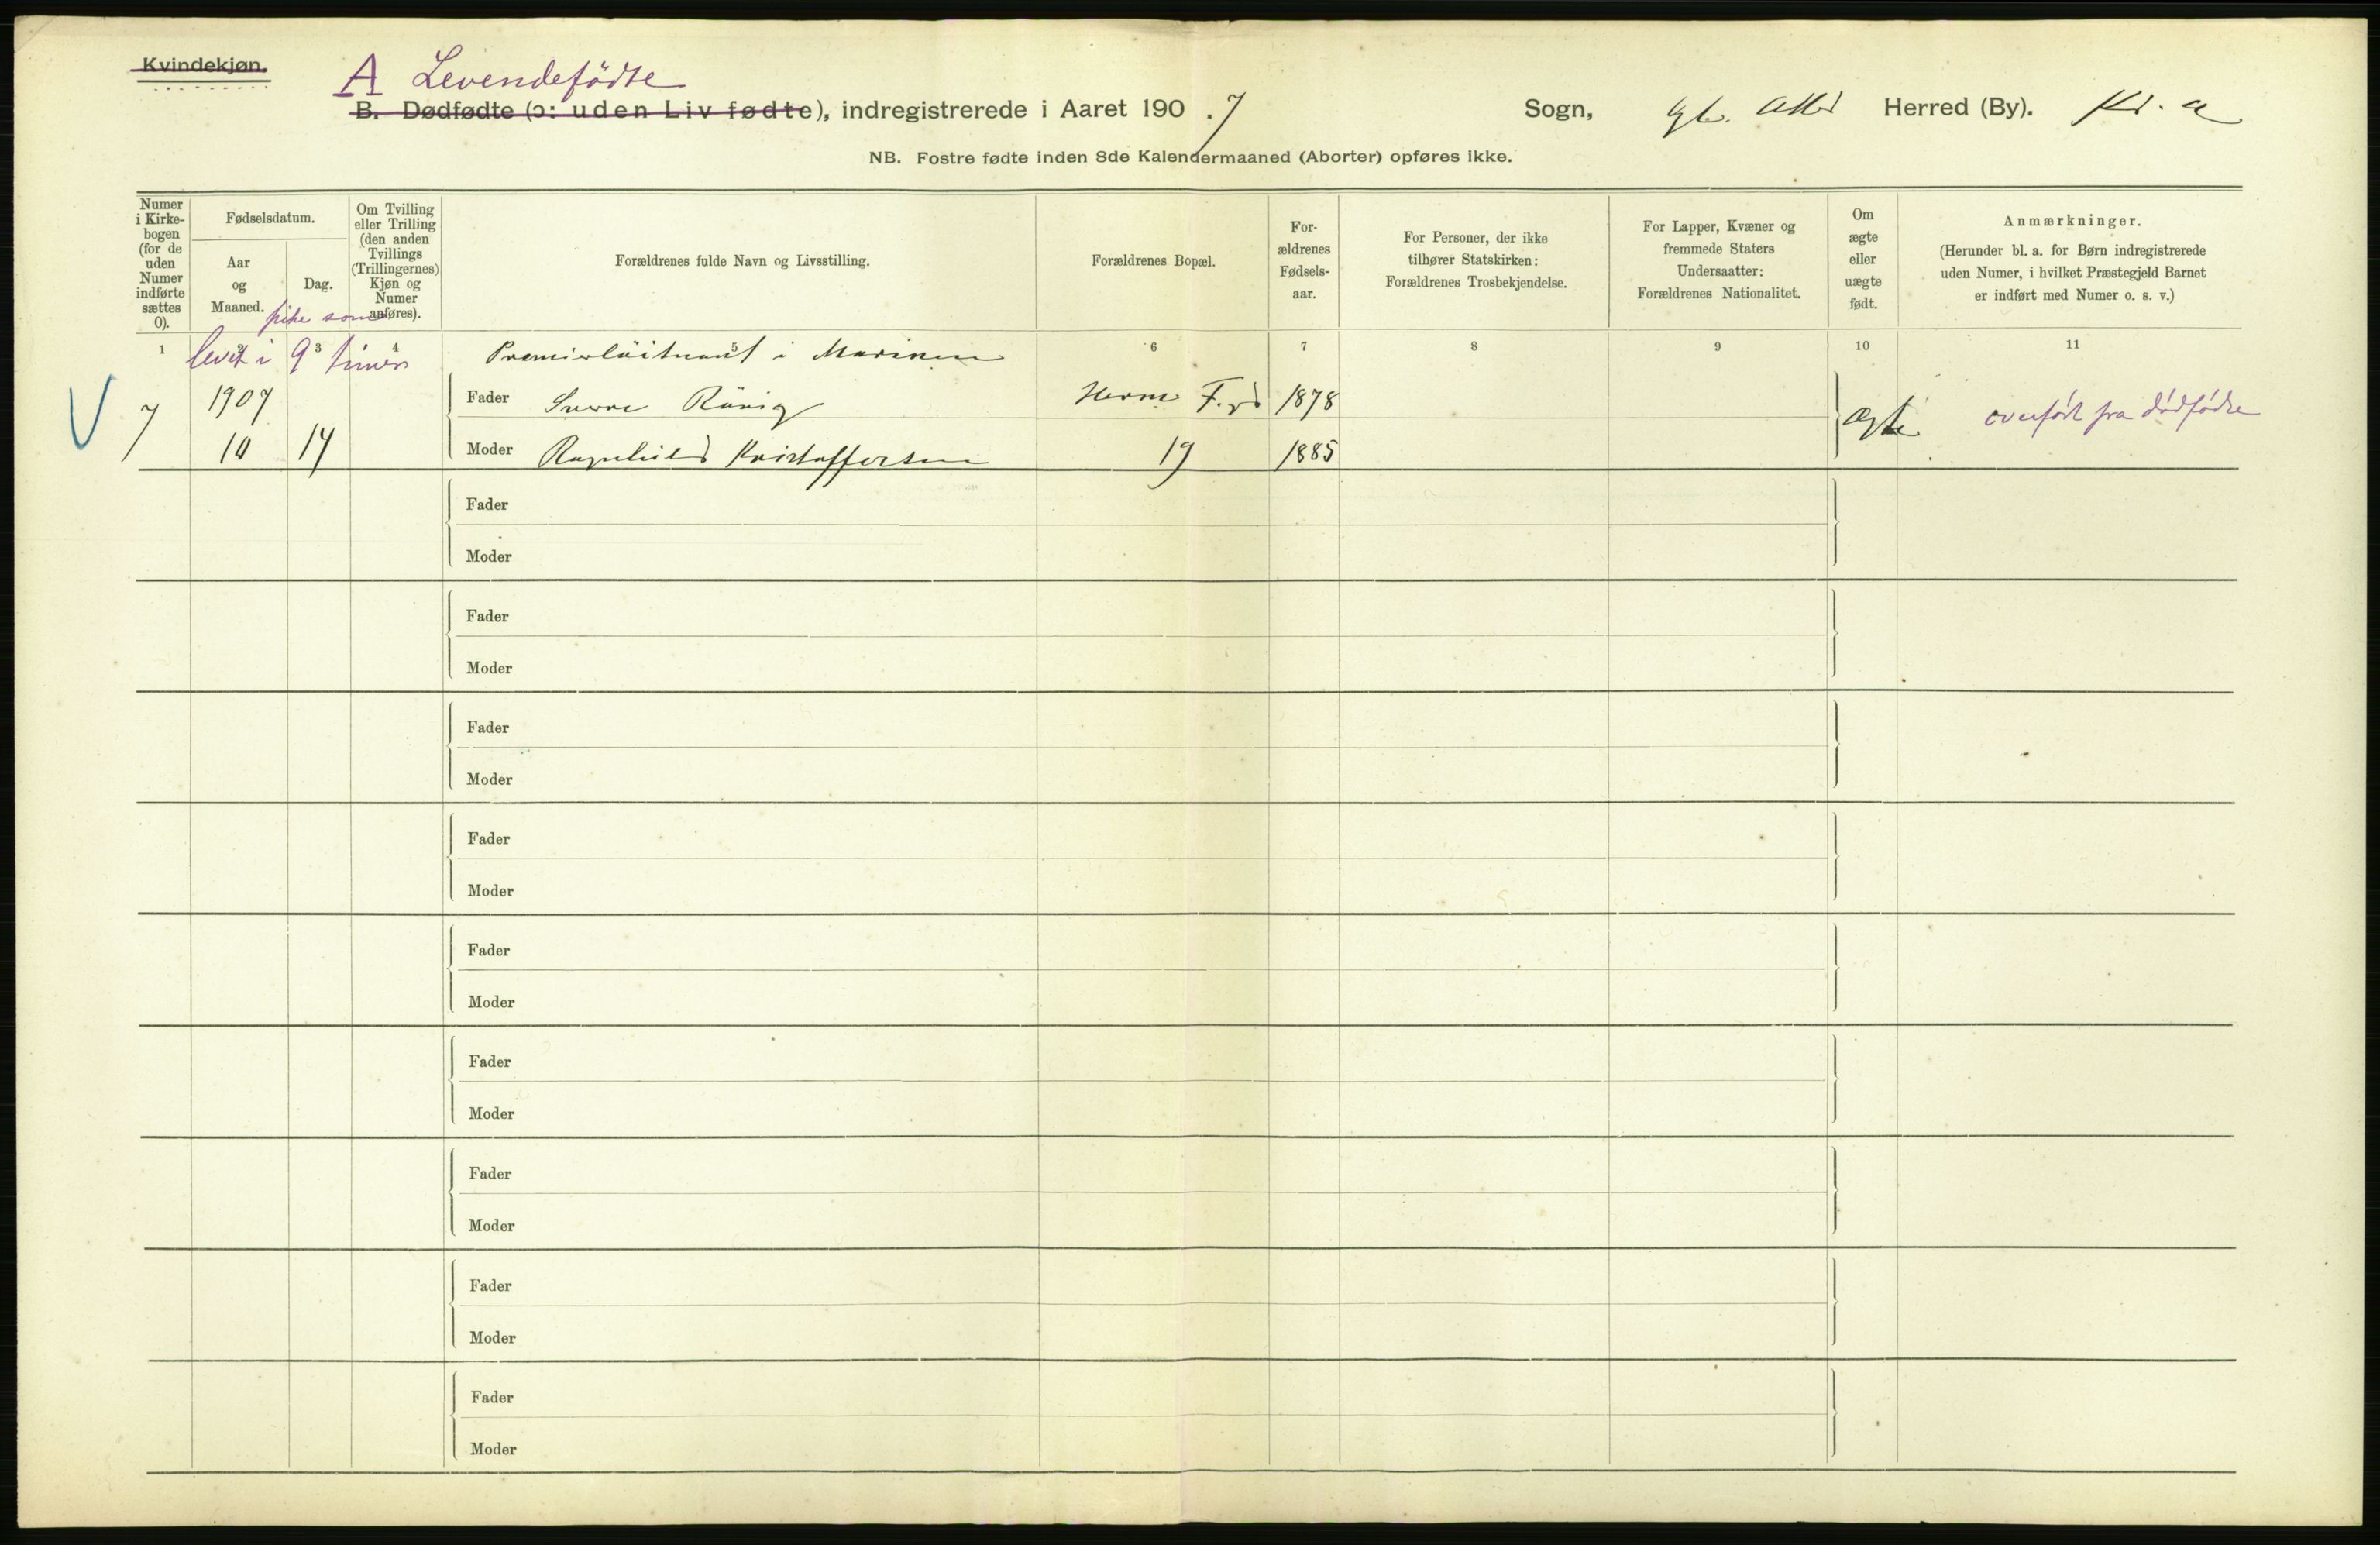 Kvindekjøn.
A Levendefödte
B. Dødfødte (ɔ: uden Liv fødte), indregistrerede i Aaret 190.7 Sogn, Gl. Aker Herred (By). Kr.a
NB. Fostre fødte inden 8de Kalendermaaned (Aborter) opføres ikke.
Numer
i Kirke-
bogen
(for de
uden
Numer
indførte
sættes
0).
Fødselsdatum.
Aar
og
Maaned.
Dag.
Om Tvilling
eller Trilling
(den anden
Tvillings
(Trillingernes)
Kjøn og
Numer
anføres).
Forældrenes fulde Navn og Livsstilling.
Forældrenes Bopæl.
For-
ældrenes
Fødsels-
aar.
For Personer, der ikke
tilhører Statskirken:
Forældrenes Trosbekjendelse.
For Lapper, Kvæner og
fremmede Staters
Undersaatter:
Forældrenes Nationalitet.
Om
ægte
eller
uægte
født.
Anmærkninger.
(Herunder bl. a. for Børn indregistrerede
uden Numer, i hvilket Præstegjeld Barnet
er indført med Numer o. s. v.)
pike som
1 2 3 4 5 6 7 8 9 10 11
levet i 9 timer
Premierlöitnant i Marinen
7 1907 Fader Sverre Römig Herm F. 1878
10 14 Moder Ragnhild Kristoffersen 19 1885
Ægte overfört fra dödfödte
Fader
Moder
Fader
Moder
Fader
Moder
Fader
Moder
Fader
Moder
Fader
Moder
Fader
Moder
Fader
Moder
Fader
Moder